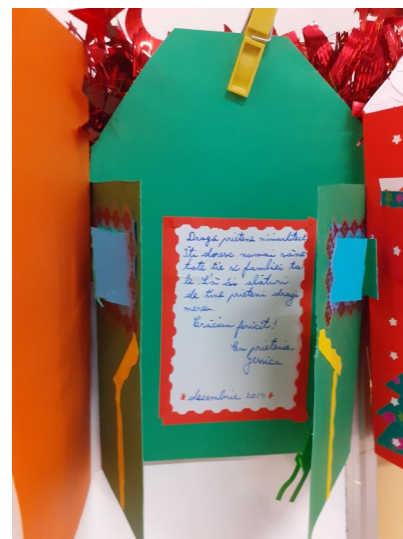 Dragă prietenă
Îți doresc numai sănă
tate ție și familiei ta
le. Să ai alături
de tine prieteni dragi
mereu.
Crăciun fericit!
Cu prietenie,
Jessica
decembrie